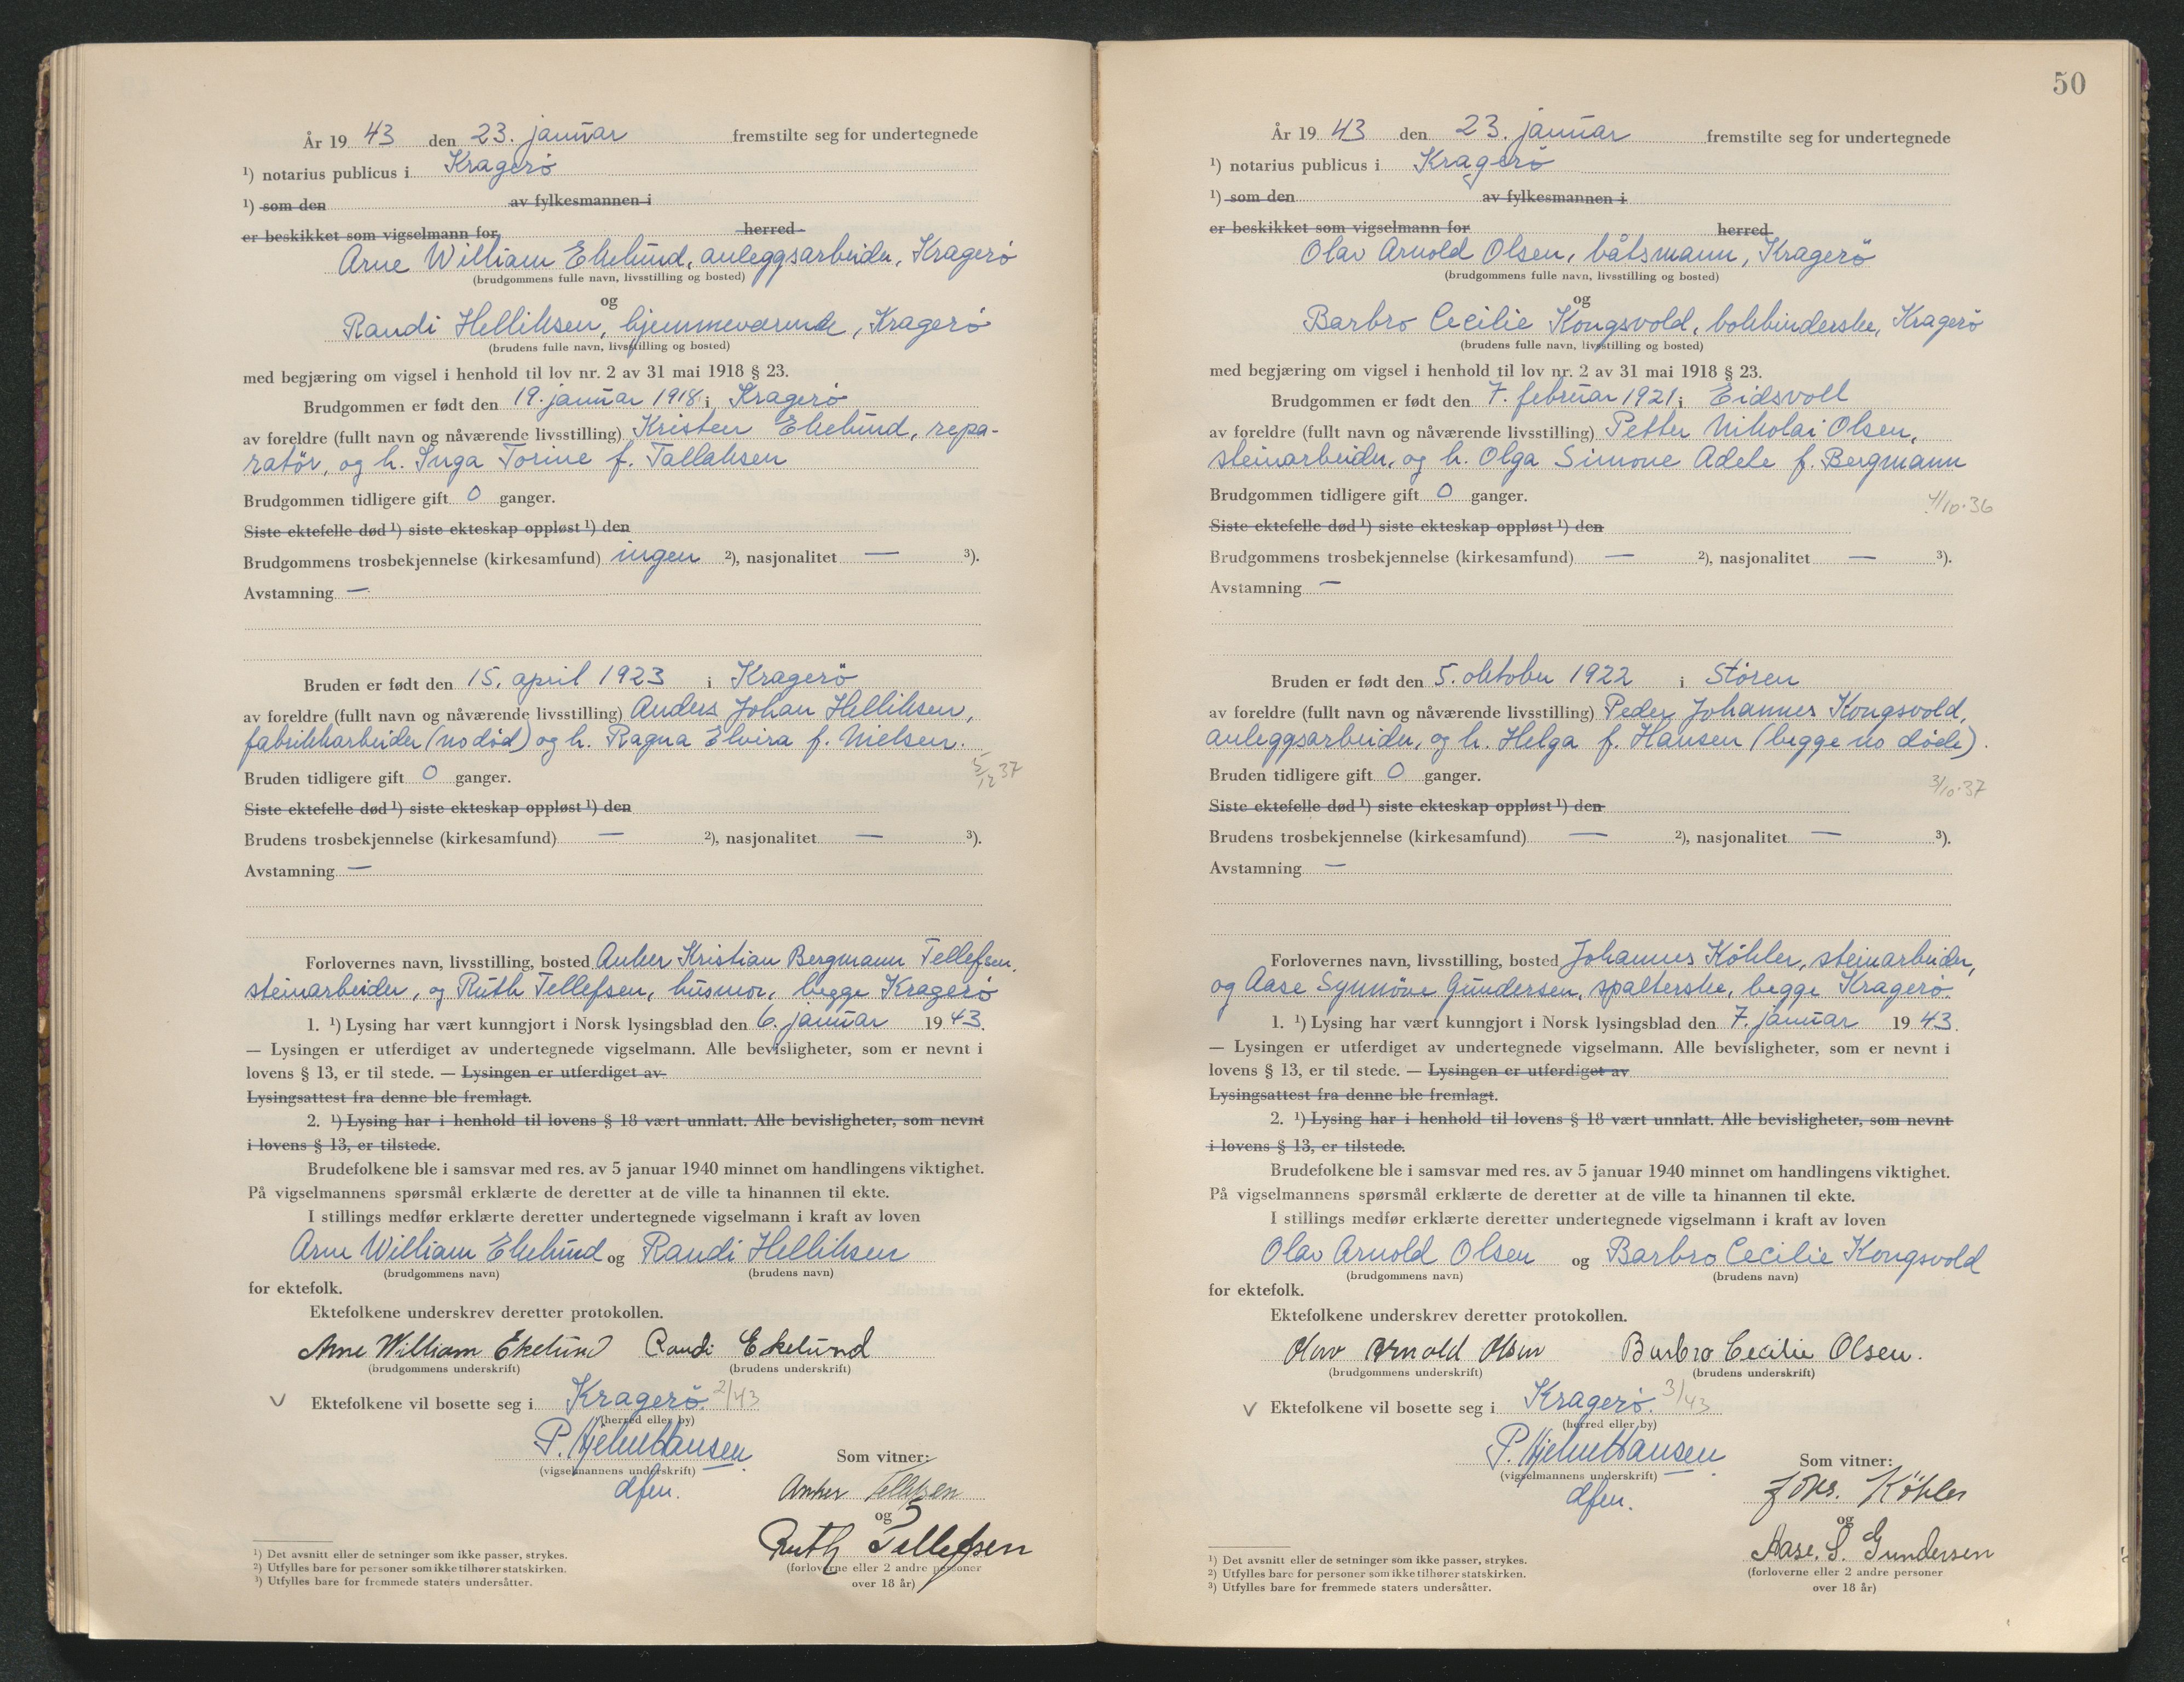 År 19 43 den 23. januar fremstilte seg for undertegnede
¹) notarius publicus i Kragerø
¹) som den av fylkesmannen i
er beskikket som vigselmann for herred
Arne William Ekelund, anleggsarbeider, Kragerø
(brudgommens fulle navn, livsstilling og bosted)
og
Randi Helliksen, hjemmeværende, Kragerø
(brudens fulle navn, livsstilling og bosted)
med begjæring om vigsel i henhold til lov nr. 2 av 31 mai 1918 § 23.
Brudgommen er født den 19. januar 1918 i Kragerø
av foreldre (fullt navn og nåværende livsstilling) Kristen Ekelund, repa-
ratør, og h. Inga Torine f. Tallaksen
Brudgommen tidligere gift 0 ganger.
Siste ektefelle død ¹) siste ekteskap oppløst ¹) den
Brudgommens trosbekjennelse (kirkesamfund) ingen ²), nasjonalitet — ³).
Avstamning —
Bruden er født den 15. april 1923 i Kragerø
av foreldre (fullt navn og nåværende livsstilling) Anders Johan Helliksen,
fabrikkarbeider (no død) og h. Ragna Elvira f. Nielsen.
5/12 37
Bruden tidligere gift 0 ganger.
Siste ektefelle død ¹) siste ekteskap oppløst ¹) den
Brudens trosbekjennelse (kirkesamfund) — ²), nasjonalitet — ³).
Avstamning —
Forlovernes navn, livsstilling, bosted Anker Kristian Bergmann Tellefsen,
steinarbeider, og Ruth Tellefsen, husmor, begge Kragerø
1. ¹) Lysing har vært kunngjort i Norsk lysingsblad den 6. januar 19 43.
— Lysingen er utferdiget av undertegnede vigselmann. Alle bevisligheter, som er nevnt i
lovens § 13, er til stede. — Lysingen er utferdiget av
Lysingsattest fra denne ble fremlagt.
2. ¹) Lysing har i henhold til lovens § 18 vært unnlatt. Alle bevisligheter, som nevnt
i lovens § 13, er tilstede.
Brudefolkene ble i samsvar med res. av 5 januar 1940 minnet om handlingens viktighet.
På vigselmannens spørsmål erklærte de deretter at de ville ta hinannen til ekte.
I stillings medfør erklærte deretter undertegnede vigselmann i kraft av loven
Arne William Ekelund og Randi Helliksen
(brudgommens navn) (brudens navn)
for ektefolk.
Ektefolkene underskrev deretter protokollen.
Arne William Ekelund Randi Ekelund
(brudgommens underskrift) (brudens underskrift)
V Ektefolkene vil bosette seg i Kragerø. 2/43
(herred eller by)
P. Hjelm Hansen
(vigselmannens underskrift)
dfm.
Som vitner:
Anker Tellefsen
og
Ruth Tellefsen
(forloverne eller 2 andre personer
over 18 år)
¹) Det avsnitt eller de setninger som ikke passer, strykes.
²) Utfylles bare for personer som ikke tilhører statskirken.
³) Utfylles bare for fremmede staters undersåtter.
50
År 19 43 den 23. januar fremstilte seg for undertegnede
¹) notarius publicus i Kragerø
¹) som den av fylkesmannen i
er beskikket som vigselmann for herred
Olav Arnold Olsen, båtsmann, Kragerø
(brudgommens fulle navn, livsstilling og bosted)
og
Barbro Cecilie Kongsvold, bokbinderske, Kragerø
(brudens fulle navn, livsstilling og bosted)
med begjæring om vigsel i henhold til lov nr. 2 av 31 mai 1918 § 23.
Brudgommen er født den 7. februar 1921 i Eidsvoll
av foreldre (fullt navn og nåværende livsstilling) Petter Nikolai Olsen,
steinarbeider, og h. Olga Simone Adele f. Bergmann
Brudgommen tidligere gift 0 ganger.
4/10.36
Siste ektefelle død ¹) siste ekteskap oppløst ¹) den
Brudgommens trosbekjennelse (kirkesamfund) — ²), nasjonalitet — ³).
Avstamning —
Bruden er født den 5. oktober 1922 i Støren
av foreldre (fullt navn og nåværende livsstilling) Peder Johannes Kongsvold,
anleggsarbeider, og h. Helga f. Hansen (begge no døde).
Bruden tidligere gift 0 ganger.
3/10.37
Siste ektefelle død ¹) siste ekteskap oppløst ¹) den
Brudens trosbekjennelse (kirkesamfund) — ²), nasjonalitet — ³).
Avstamning —
Forlovernes navn, livsstilling, bosted Johannes Köhler, steinarbeider,
og Aase Synnöve Gundersen, spalterske, begge Kragerø.
1. ¹) Lysing har vært kunngjort i Norsk lysingsblad den 7. januar 19 43.
— Lysingen er utferdiget av undertegnede vigselmann. Alle bevisligheter, som er nevnt i
lovens § 13, er til stede. — Lysingen er utferdiget av
Lysingsattest fra denne ble fremlagt.
2. ¹) Lysing har i henhold til lovens § 18 vært unnlatt. Alle bevisligheter, som nevnt
i lovens § 13, er tilstede.
Brudefolkene ble i samsvar med res. av 5 januar 1940 minnet om handlingens viktighet.
På vigselmannens spørsmål erklærte de deretter at de ville ta hinannen til ekte.
I stillings medfør erklærte deretter undertegnede vigselmann i kraft av loven
Olav Arnold Olsen og Barbro Cecilie Kongsvold
(brudgommens navn) (brudens navn)
for ektefolk.
Ektefolkene underskrev deretter protokollen.
Olav Arnold Olsen Barbro Cecilie Olsen.
(brudgommens underskrift) (brudens underskrift)
V Ektefolkene vil bosette seg i Kragerø. 3/43
(herred eller by)
P. Hjelm Hansen
(vigselmannens underskrift)
dfm.
Som vitner:
Johs. Köhler
og
Aase. S. Gundersen
(forloverne eller 2 andre personer
over 18 år)
¹) Det avsnitt eller de setninger som ikke passer, strykes.
²) Utfylles bare for personer som ikke tilhører statskirken.
³) Utfylles bare for fremmede staters undersåtter.